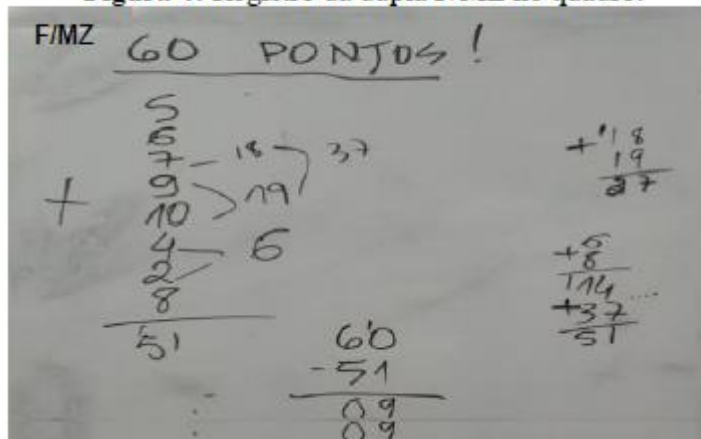 F/MZ
60 PONTOS!
5
6
7 18 37
9
+ 10 19
4 6
2
8
51
+ 18
19
37
+ 6
8
14
+37
51
60
-51
09
09